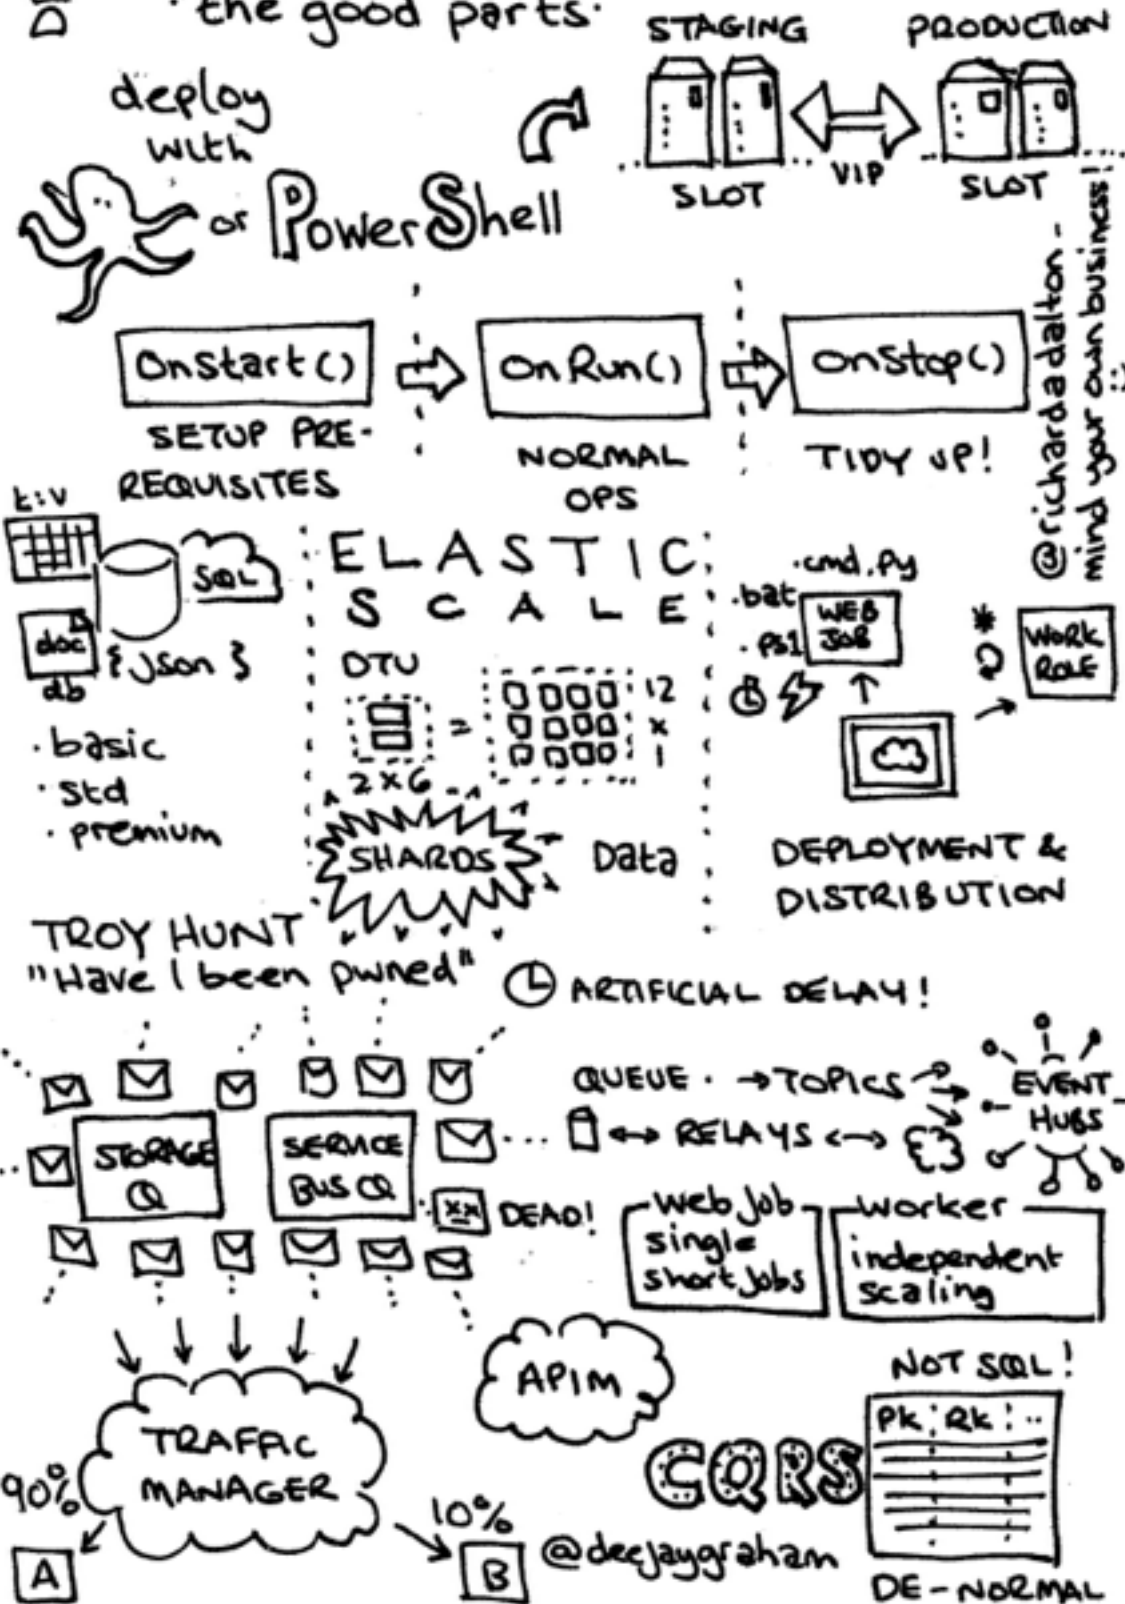 the good parts.
STAGING
PRODUCTION
deploy
with
or PowerShell
SLOT
VIP
SLOT
@richardadalton -
mind your own business!
OnStart()
OnRun()
OnStop()
SETUP PRE-
REQUISITES
NORMAL
OPS
TIDY UP!
k:v
SQL
doc
db
{json}
. basic
. std
. premium
ELASTIC
SCALE
DTU
=
12
x
1
2x6
SHARDS
Data
.cmd .py
.bat
.ps1
WEB
JOB
*
WORK
ROLE
DEPLOYMENT &
DISTRIBUTION
TROY HUNT
"Have I been pwned"
ARTIFICIAL DELAY!
STORAGE
Q
SERVICE
BUS Q
xx
DEAD!
QUEUE . → TOPICS
RELAYS
EVENT
HUBS
Web job
single
short jobs
Worker
independent
scaling
TRAFFIC
MANAGER
90%
A
10%
B
APIM
CQRS
@deejaygraham
NOT SQL!
PK RK ..
DE-NORMAL